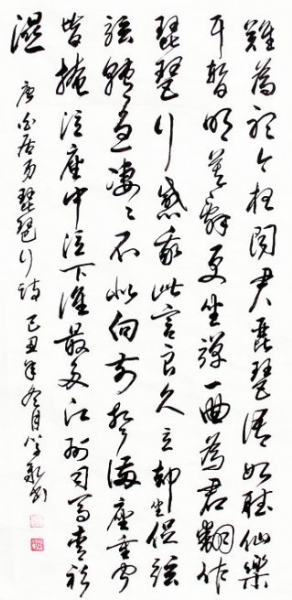 難為聽今夜聞君琵琶語如聽仙樂
耳暫明莫辭更坐彈一曲為君翻作
琵琶行感我此言良久立卻坐促弦
弦轉急凄〻不似向前聲滿座重聞
皆掩泣座中泣下誰最多江州司馬青衫
濕
唐白居易琵琶行詩己丑年冬月